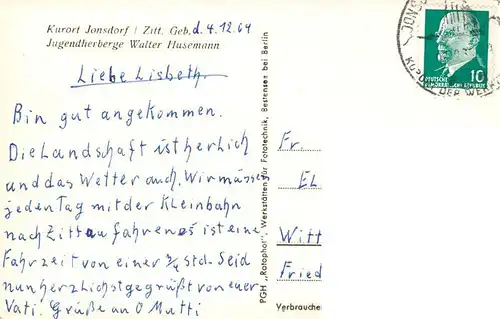 Kurort Jonsdorf / Zitt. Geb. d. 4.12.64
Jugendherberge Walter Husemann
Liebe Lisbeth.
Bin gut angekommen.
Die Landschaft ist herlich
und das Wetter auch. Wir müssen
jeden Tag mit der Kleinbahn
nach Zittau fahren es ist eine
Fahrzeit von einer 3/4 std. Seid
nun herzlichst gegrüßt von euer
Vati. Grüße an O Mutti
PGH „Rotophot“, Werkstätten für Fototechnik, Bestensee bei Berlin
DEUTSCHE
DEMOKRATISCHE REPUBLIK
10
Fr.
EL
Witt
Fried
Verbrauche